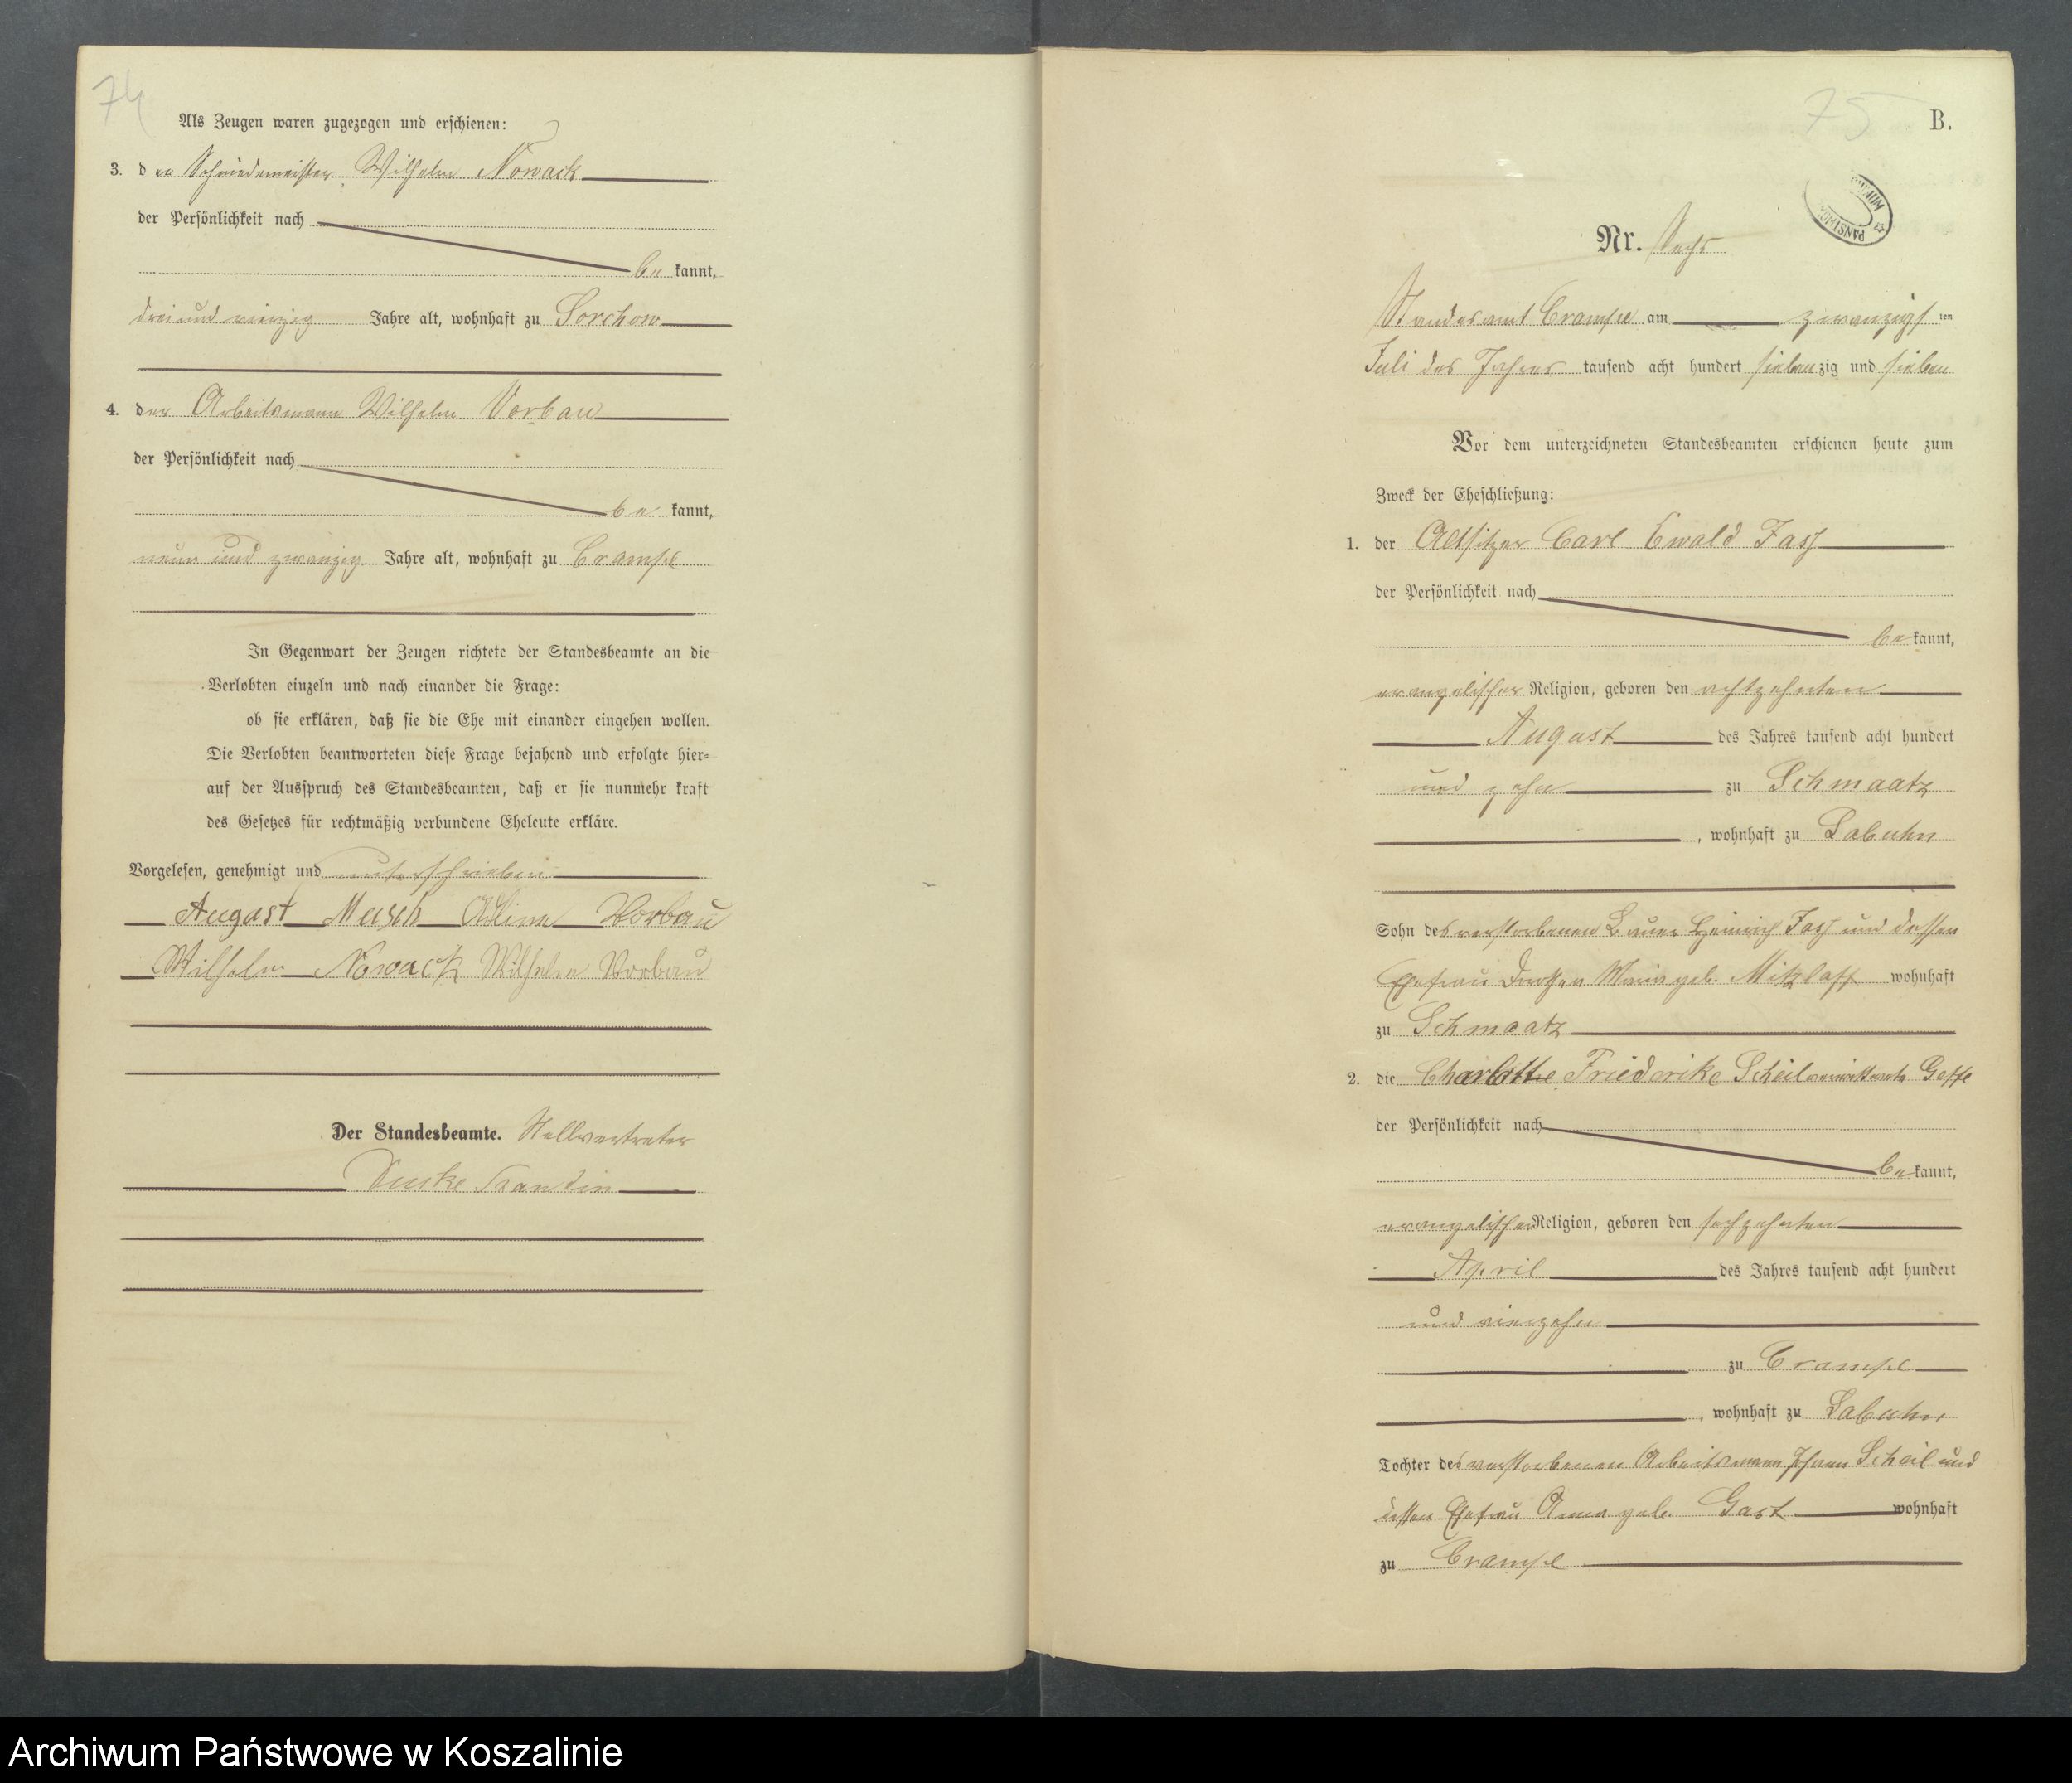 74
Als Zeugen waren zugezogen und erschienen:
3. der Schmiedemeister Wilhelm Nowack
der Persönlichkeit nach
be kannt,
drei und vierzig Jahre alt, wohnhaft zu Sorchow
4. der Arbeitsmann Wilhelm Vorbau
der Persönlichkeit nach
be kannt,
neun und zwanzig Jahre alt, wohnhaft zu Crampe
In Gegenwart der Zeugen richtete der Standesbeamte an die
Verlobten einzeln und nach einander die Frage:
ob sie erklären, daß sie die Ehe mit einander eingehen wollen.
Die Verlobten beantworteten diese Frage bejahend und erfolgte hier=
auf der Ausspruch des Standesbeamten, daß er sie nunmehr kraft
des Gesetzes für rechtmäßig verbundene Eheleute erkläre.
Vorgelesen, genehmigt und unterschrieben
August Musch Vorbau
Wilhelm Nowack Wilhelm Vorbau
Der Standesbeamte. Stellvertreter
75
B.
Nr. Sechs
Standesamt Crampe am zwanzigsten
Juli des Jahres tausend acht hundert siebenzig und sieben
Vor dem unterzeichneten Standesbeamten erschienen heute zum
Zweck der Eheschließung:
1. der Altsitzer Carl Ewald Fass
der Persönlichkeit nach
be kannt,
evangelischer Religion, geboren den achtzehnten
August des Jahres tausend acht hundert
und zehn zu Schmaatz
, wohnhaft zu Labuhn
Sohn des verstorbenen Bauer Heinrich Fass und dessen
Ehefrau Maria geb. Mitzlaff wohnhaft
zu Schmaatz
2. die Charlotte Friederike Scheil verwittwete
der Persönlichkeit nach
be kannt,
evangelischer Religion, geboren den sechzehnten
April des Jahres tausend acht hundert
und vierzehn
zu Crampe
, wohnhaft zu Labuhn,
Tochter des verstorbenen Arbeitsmann Johann Scheil und
dessen Ehefrau Anna geb. Gast wohnhaft
zu Crampe
Archiwum Państwowe w Koszalinie